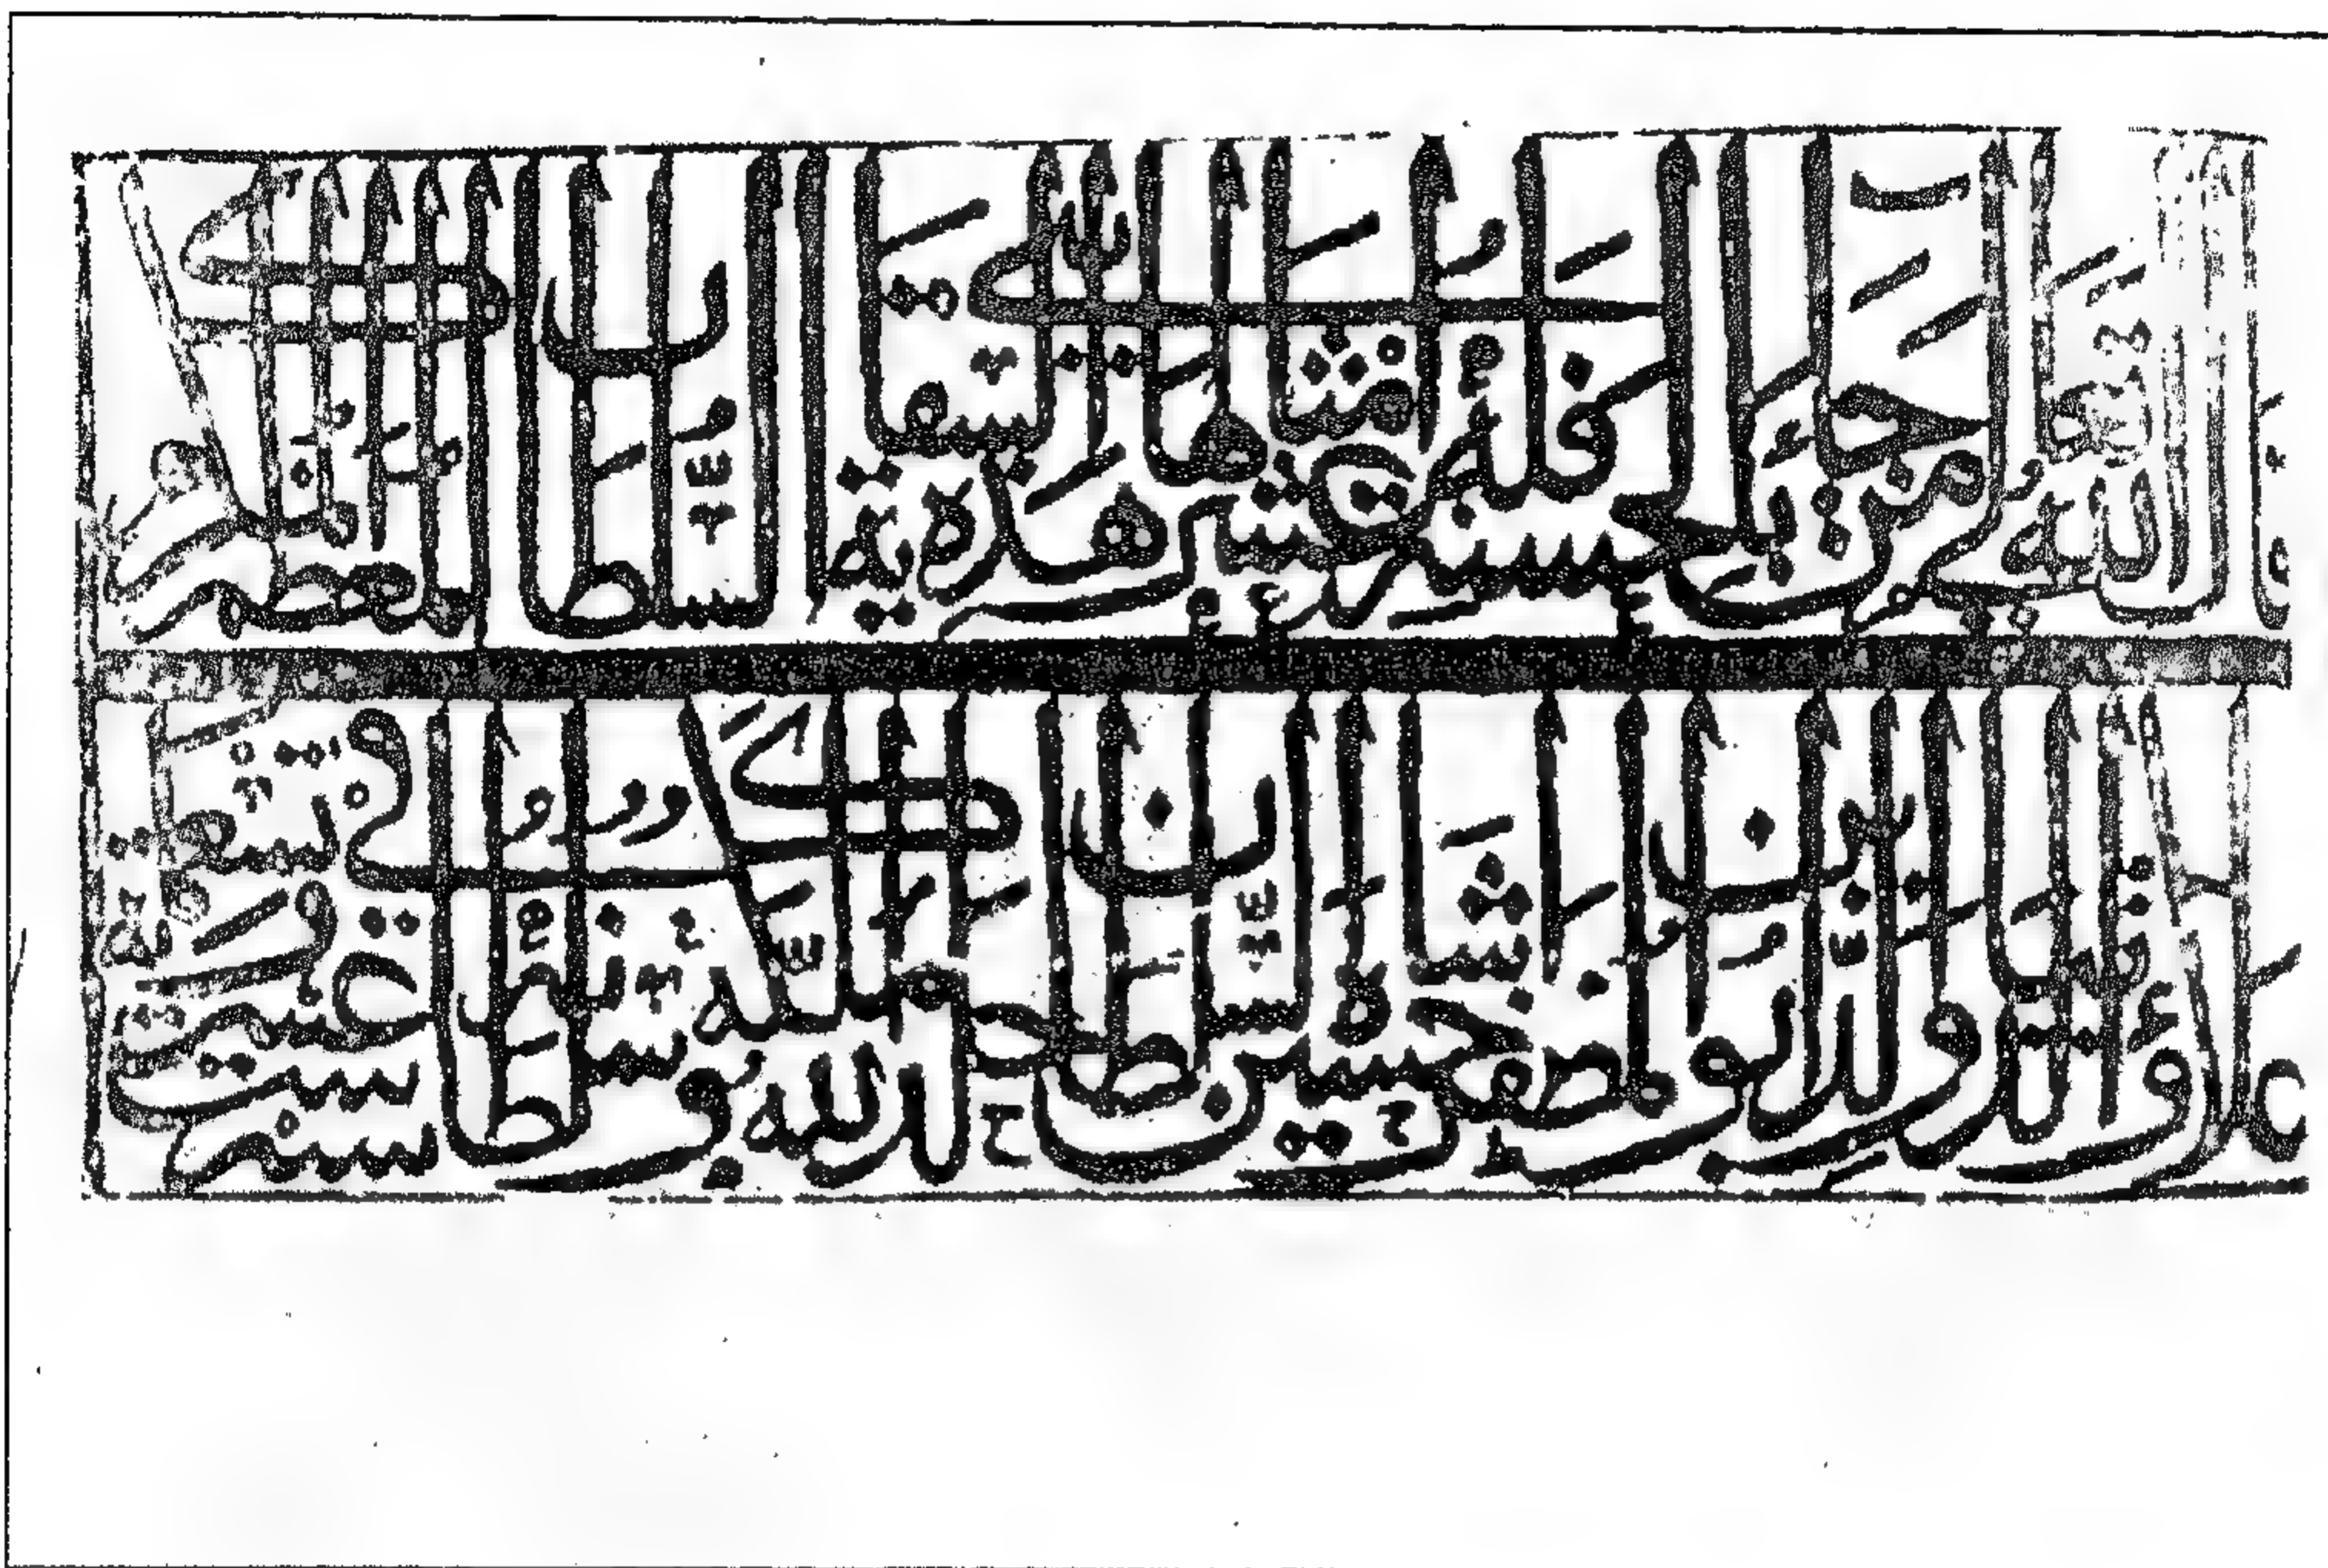 قال الله تعالى من جاء بالحسنة فله عشر امثالها بنى هذه السقاية السلطان المعظم المكرم
علاء الدنيا والدين ابو المظفر حسين شاه السلطان خلد الله ملكه وسلطانه فى سنة ست عشر وتسعمائة